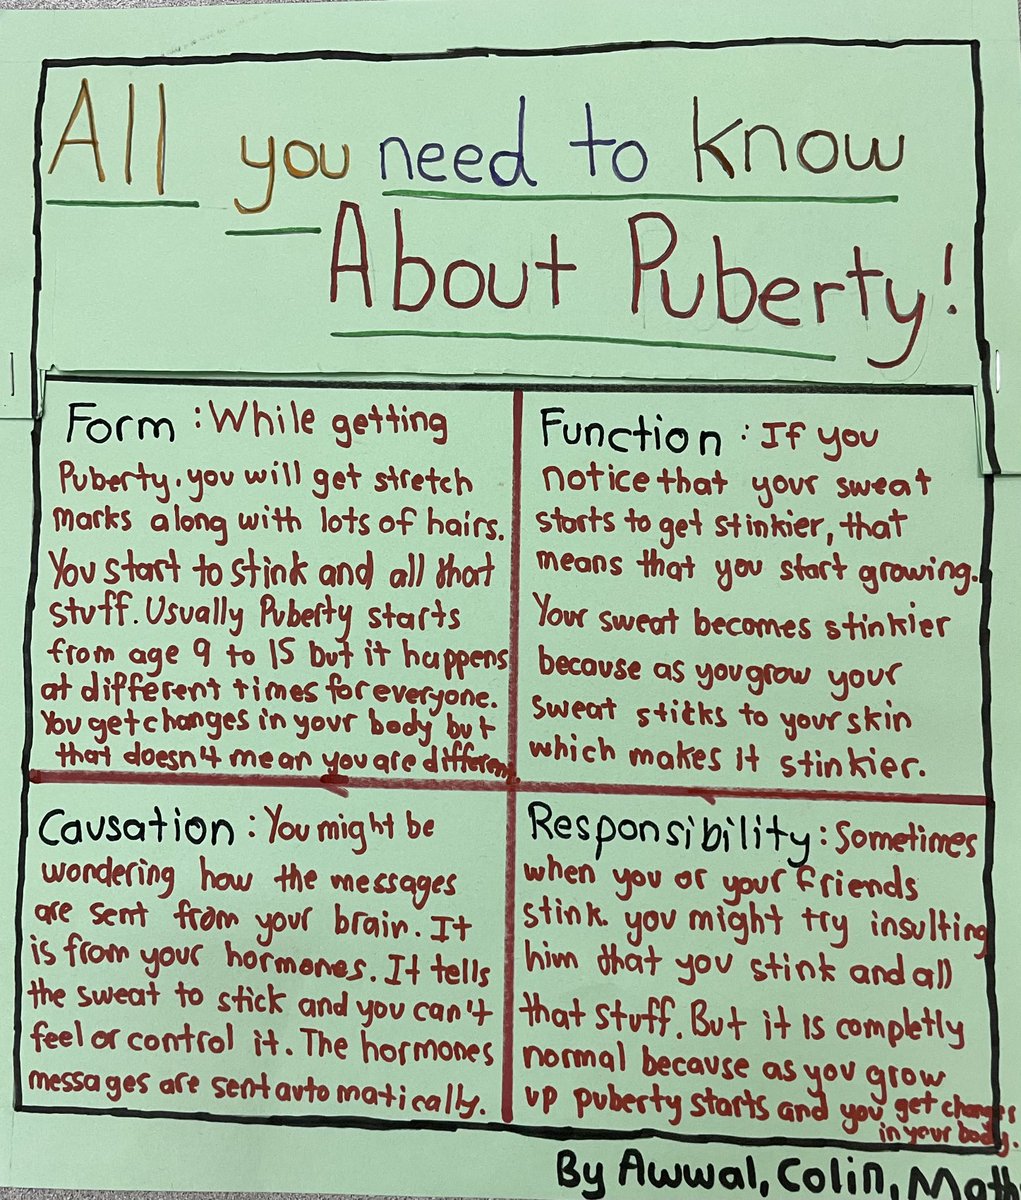 All you need to know
About Puberty!
Form : While getting
Puberty, you will get stretch
marks along with lots of hairs.
You start to stink and all that
stuff. Usually Puberty starts
from age 9 to 15 but it happens
at different times for everyone.
You get changes in your body but
that doesn't mean you are different
Function : If you
notice that your sweat
starts to get stinkier, that
means that you start growing.
Your sweat becomes stinkier
because as you grow your
sweat sticks to your skin
which makes it stinkier.
Causation : You might be
wondering how the messages
are sent from your brain. It
is from your hormones. It tells
the sweat to stick and you can't
feel or control it. The hormones
messages are sent automatically.
Responsibility : Sometimes
when you or your friends
stink you might try insulting
him that you stink and all
that stuff. But it is completly
normal because as you grow
up puberty starts and you get changes
in your body.
By Awwal, Colin,